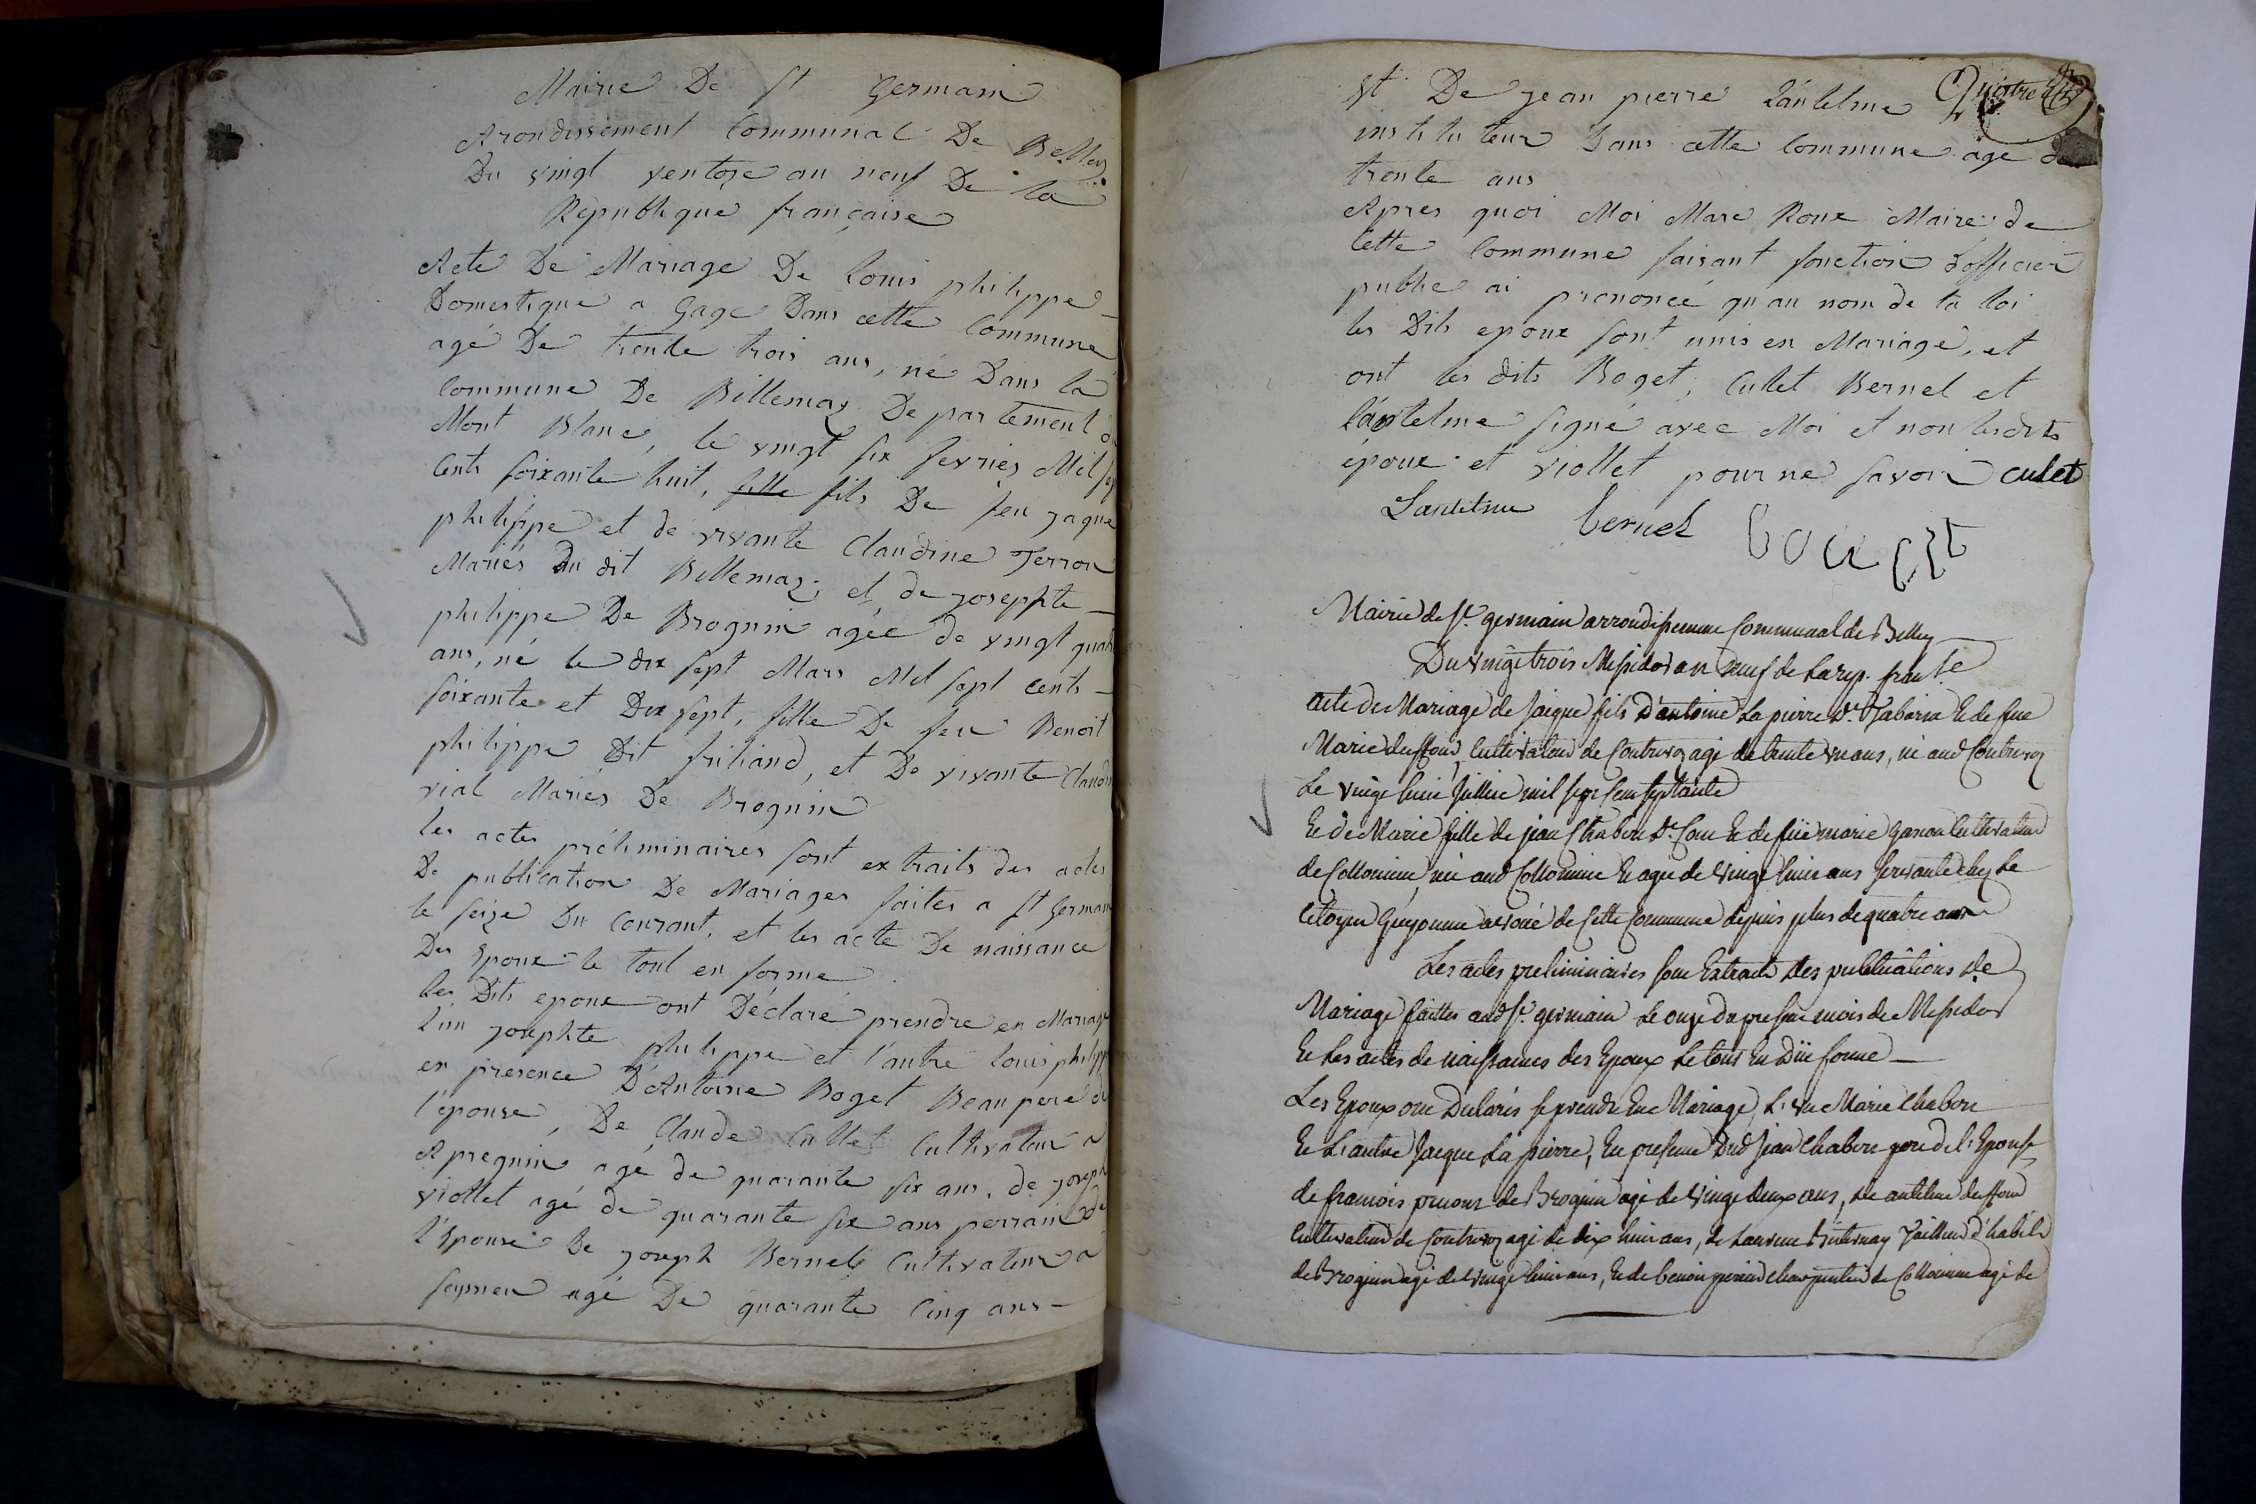 Mairie De St Germain
Arondissement Communal De Belley
Du vingt ventose an neuf De la
République française
Acte De Mariage De Louis philippe
Domestique a Gage Dans cette Commune
agé De trente trois ans, né Dans la
Commune De Billemaz Departement d
Mont Blanc, le vingt six fevrier Mil sep
Cents soixante huit, fille fils De feu jaque
philippe et de vivante Claudine Terron
Mariés Du dit Billemaz, et de josephte
philippe De Brognin agée de vingt quat
ans, né le dix sept Mars Mil sept cents
soixante et Dix sept, fille De feu Benoit
philippe Dit friliand, et De vivante Claudi
vial Mariés De Brognin
les actes préliminaires sont extraits des actes
De publication De Mariages faites a St Germain
le seize Du Courant, et les acte De naissance
Des Epoux le tout en forme
les Dits epoux ont Déclaré prendre en Mariage
l'un josephte philippe et l'autre louis philipp
en presence D'Antoine Boget Beaupere de
l'épouse, De Claude Cullet Cultivateur a
Apregnin agé de quarante six ans, de joseph
viollet agé de quarante six ans perrain de
l'Epouse De joseph Bernel Cultivateur a
agé De quarante Cinq ans
Et De jean pierre Lantelme
instituteur Dans cette Commune agé de
trente ans
Apres quoi Moi Marc Roux Maire de
Cette Commune faisant fonction d'officier
public ai prononcé qu au nom de la loi
les Dits epoux sont unis en Mariage, et
ont les dits Boget, Cullet Bernel et
Lantelme signé avec Moi et non lesdits
époux et viollet pour ne savoir culet
Lantelme bernel
Mairie de St germain arrondissemene Communal de Belley
Du vingt trois Messidor an neuf de la rep. franse
acte de Mariage de Jaique fils D'antoine La pierre dt Tabaria Et de fue
Marie duffour Cultivateur de Contrevoz agé de trente un ans, né aud Contrevoz
Le vingt huit Juillie mil sept Cent septante
Et de Marie fille de jean Chabert dt Et de füe marie Ganon Cultivateur
de Collomieu née aud Collomieu Et agée de vingt huit ans servante chez Le
Citoyen Guyonne avoué de Cette Commune depuis plus de quatre ans
Les actes preliminaires sont Extraits des publications de
Mariage faittes aud St germain Le onze du presene mois de Messidor
Et Les actes de naissances des Epoux Le tout En Düe forme
Les Epoux ont Déclarés se prendre En Mariage, L'un Marie Chabert
Et L'autre Jacque La pierre, En presence Dud Jean Chabert pere de l'Epouse
de francois de Brognin agé de vingt deux ans, de antelme duffour
Cultivateur de Contrevoz agé de dix huit ans, de Laurent Tailleur d'habits
de Brognin agé de vingt huit ans, Et de benoit charpentier de Collomieu agé de